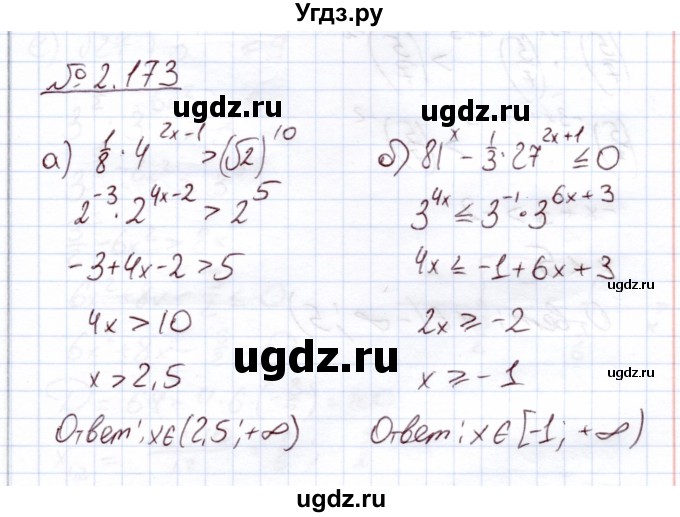 Угдз.ру
№ 2.173
а) 1/8 · 4^(2x-1) > (√2)^10
2^(-3) · 2^(4x-2) > 2^5
-3+4x-2>5
4x>10
x>2,5
Ответ: x∈(2,5;+∞)
б) 81^x - 1/3 · 27^(2x+1) ≤ 0
3^(4x) ≤ 3^(-1) · 3^(6x+3)
4x ≤ -1+6x+3
2x ≥ -2
x ≥ -1
Ответ: x∈[-1; +∞)
ugdz.ru
ugdz.ru
ugdz.ru
ugdz.ru
ugdz.ru
ugdz.ru
ugdz.ru